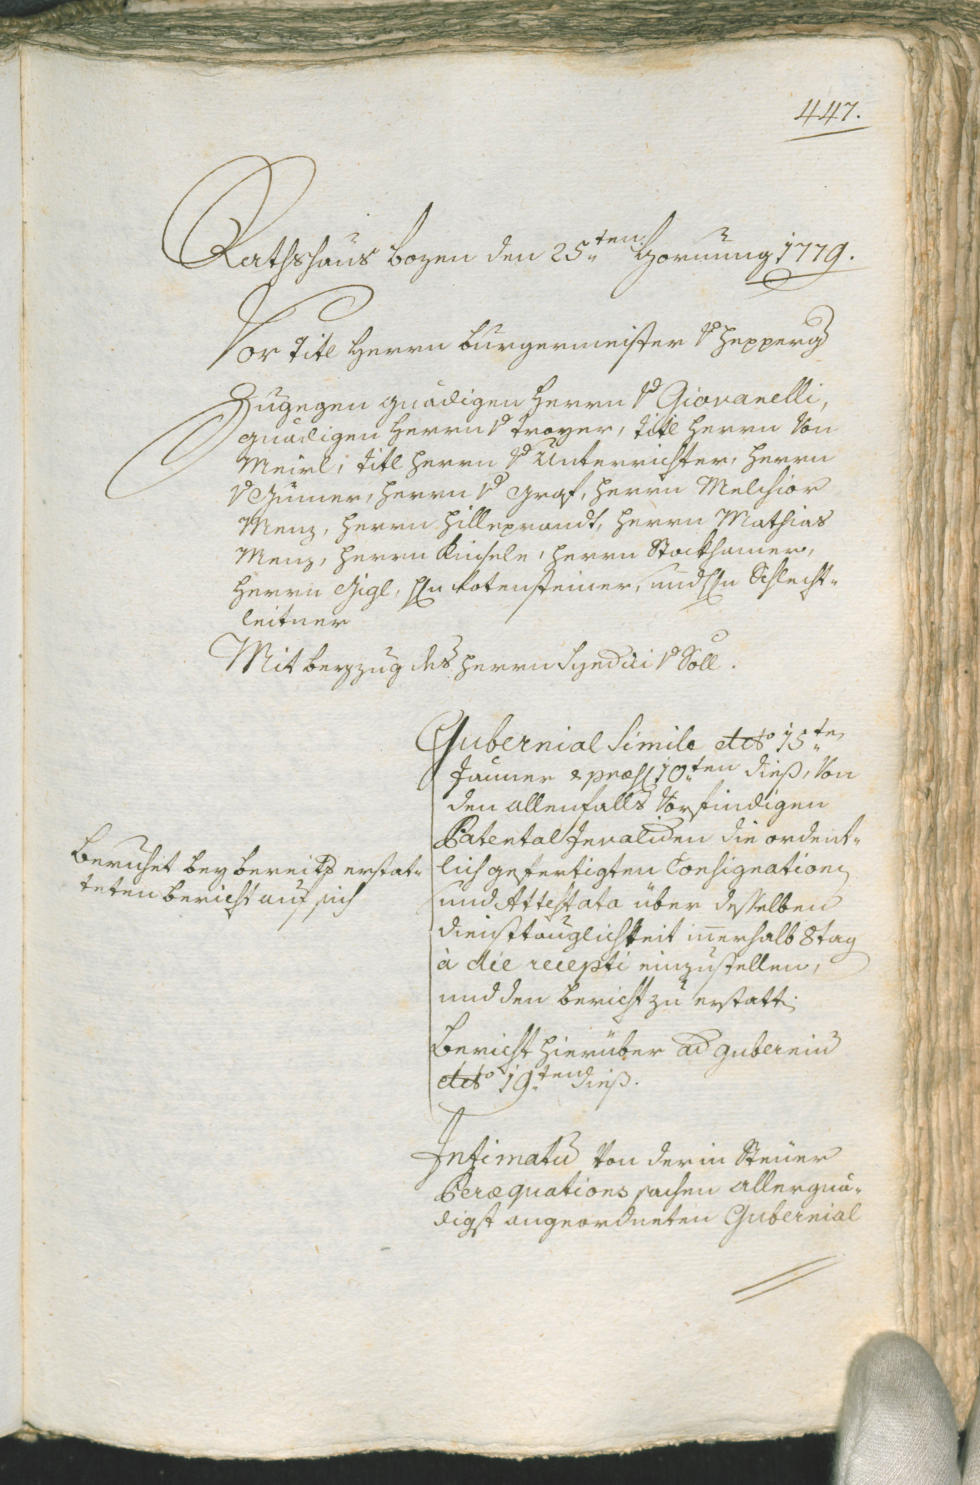 447.
Rathshaus Bozen den 25.ten Hornung 1779.
Vor Titl Herrn Burgermeister v Hepperg
Zugegen gnädigen Herrn v Giovanelli,
gnädigen Herrn v Troyer, Titl Herrn von
Meirl, Titl Herrn v Unterrichter, Herrn
v Gumer, Herrn v Graf, Herrn Melchior
Menz, Herrn Hilleprandt, Herrn Mathias
Menz, Herrn Kinsele, Herrn Stockhamer,
Herrn Gigl, Hn Rotensteiner, und Hn Schlecht-
leitner
Mit beyzug des Herrn Syndici v Söll.
Gubernial Simile ddto 15.ten
Jänner & præs 10.ten dieß, von
den allenfalls vorfindigen
Patental Invaliden die ordent-
lich gefertigten Consignationen
und Attestata über desselben
diensttauglichkeit inerhalb 8 tag
à die recepti einzustellen,
und den bericht zu erstatten
Beruhet bey bereits erstat-
teten bericht auf sich
Bericht hierüber ad gubernium
ddto 19.ten dieß.
Intimatum von der in Steuer
Peræquations sachen allergnä-
digst angeordneten Gubernial